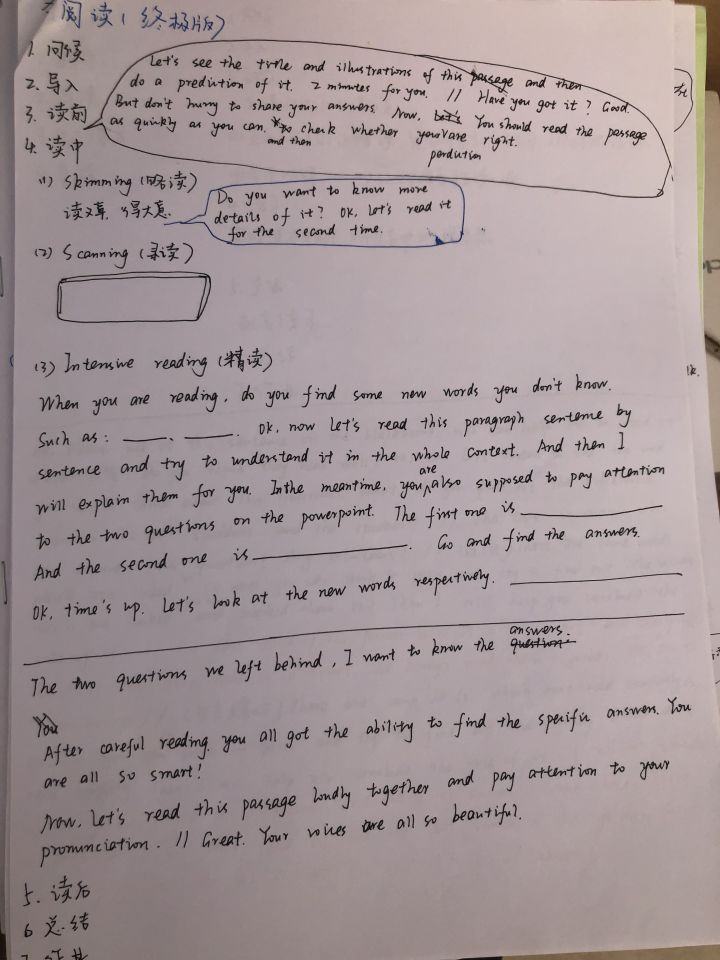 阅读（终极版）
1. 问候
2. 导入
3. 读前
4. 读中
Let's see the title and illustrations of this passage and then
do a prediution of it. 2 minutes for you. // Have you got it? Good.
But don't hurry to share your answers. Now, Let's You should read the passage
as quickly as you can. to check whether your are right.
and then
perdiution
(1) Skimming (略读)
读文章，得大意.
Do you want to know more
details of it? OK, let's read it
for the second time.
(2) Scanning (寻读)
(3) Intensive reading (精读)
When you are reading, do you find some new words you don't know.
Such as: ____、____. OK, now let's read this paragraph sentence by
sentence and try to understand it in the whole context. And then I
will explain them for you. Inthe meantime, you are also supposed to pay attention
to the two questions on the powerpoint. The first one is ____
And the second one is ____. Go and find the answers.
OK, time's up. Let's look at the new words respertively. ____
The two questions we left behind, I want to know the question answers.
You
After careful reading, you all got the ability to find the specific answers. You
are all so smart!
Now, let's read this passage loudly together and pay attention to your
pronunciation. // Great. Your voices are all so beautiful.
5. 读后
6 总结